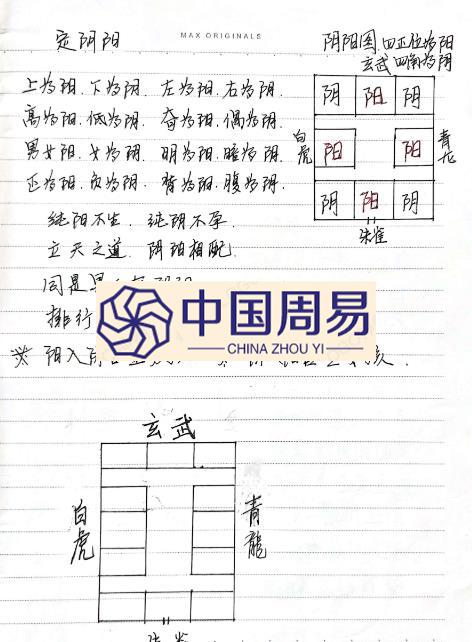 定阴阳
MAX ORIGINALS
阴阳图.四正位为阳
玄武 四角为阴
上为阳.下为阴.左为阳.右为阴.
高为阳.低为阴.奇为阳.偶为阴.
男为阳.女为阴.明为阳.暗为阴.
正为阳.反为阴.背为阳.腹为阴.
纯阳不生.纯阴不孕.
立天之道.阴阳相配.
阴 阳 阴
白虎 阳 阳 青龙
阴 阳 阴
朱雀
同是
排行
阳入
中国周易
CHINA ZHOU YI
玄武
白虎
青龍